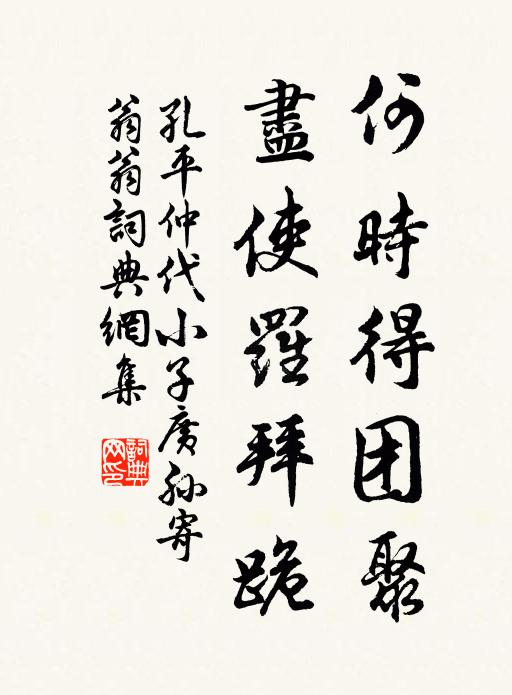 何時得团聚
盡使羅拜跪
孔平仲代小子廣孫寄
翁翁詞典網集
詞典
网印